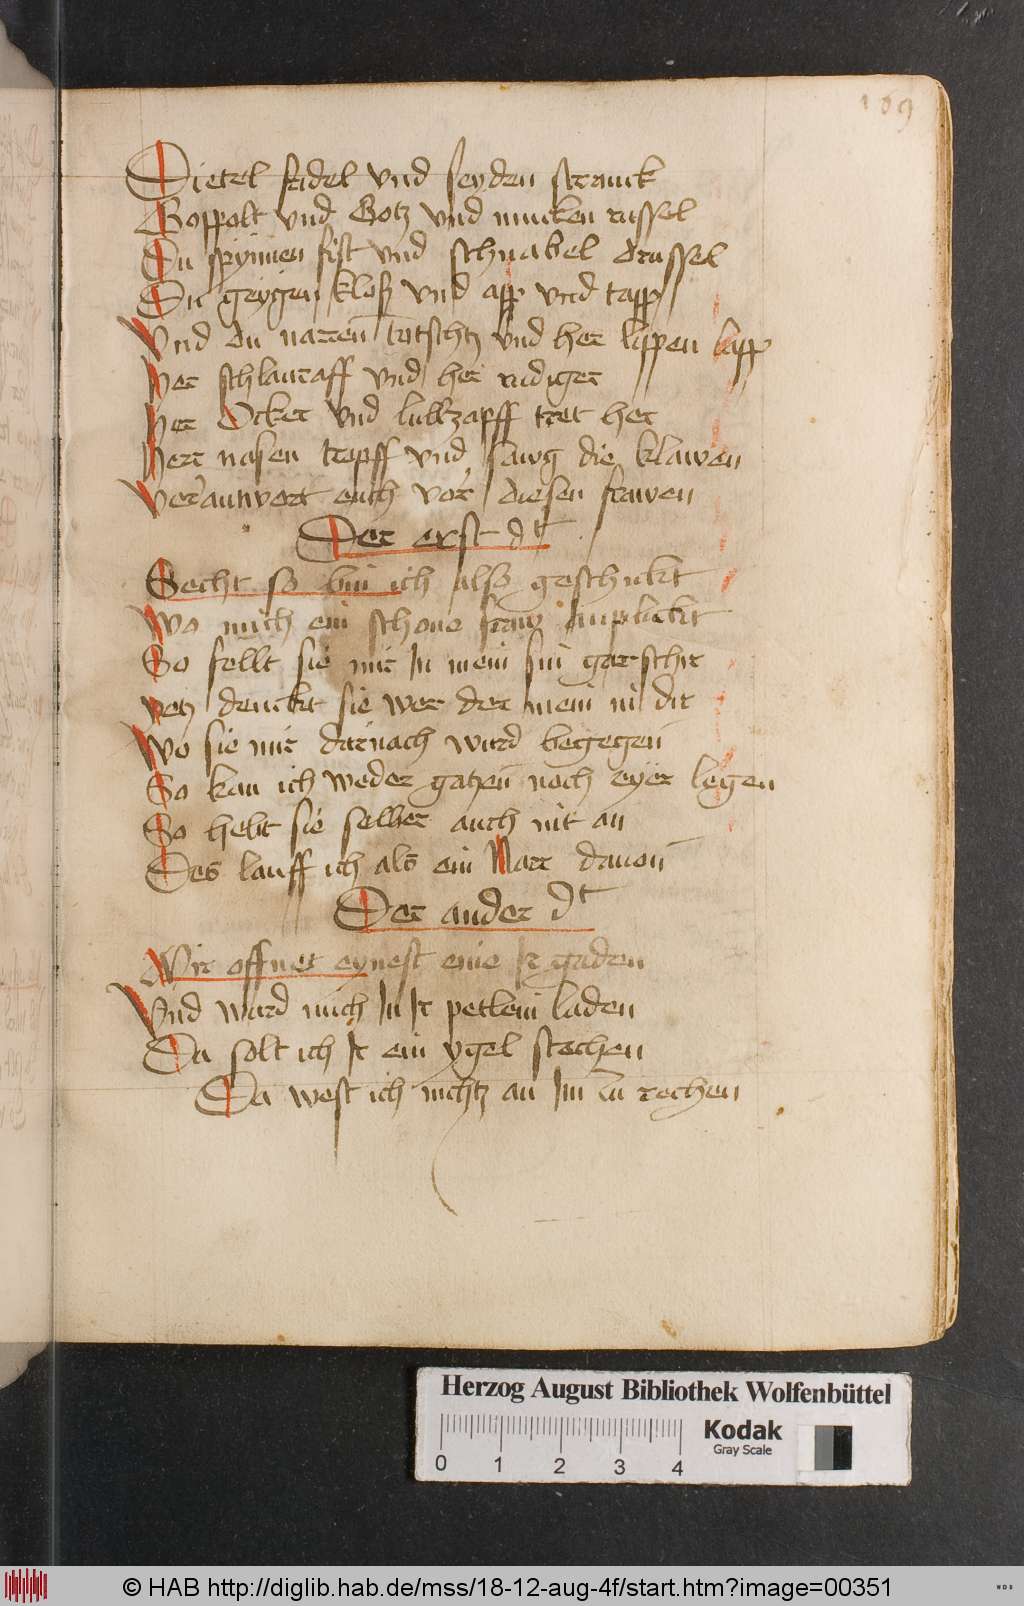 169
Dietel fidel vnd seyden stranck
Goppolt vnd Gotz vnd mucken russel
Du spynnen fist vnd schnabel drussel
Du geygen kloß vnd app vnd tapp
Vnd du narren totschz vnd her lippen lapp
Her schlauraff vnd her rudiger
Her Ocker vnd lullzapff tret her
Herr nasen tropff vnd sawg die klawen
Verantwort euch vor diesen frawen
Der erst dt
Secht so bin ich also geschickt
Wo mich ein schone fraw anplickt
So fellt sie mir In mein sin garschir
vetz denckt sie wer der mein in dir
Wo sie mir darnach wurd begegen
So kan ich weder gatzen noch eyer legen
So hebt sie selber auch nit an
Des lauff ich als ein Narr dauon
Der ander dt
Mir offnet eynest eine Ir gaden
Vnd ward mich In Ir petlein laden
Da solt ich Ir ein ygel stechen
Da west ich nichtz an Im zu rechen
Herzog August Bibliothek Wolfenbüttel
0 1 2 3 4
Kodak
Gray Scale
© HAB http://diglib.hab.de/mss/18-12-aug-4f/start.htm?image=00351